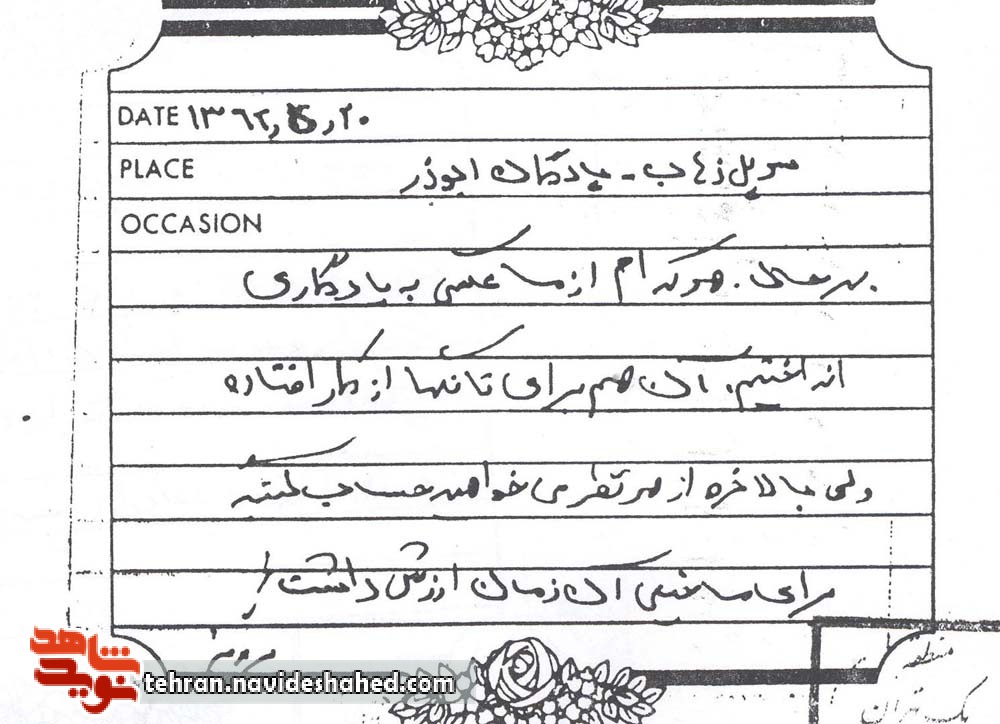 DATE ۱۳۶۲,۵,۲۰
PLACE سرپل ذهاب - پادگان ابوذر
OCCASION
بهرحال. هرکدام از ما عکسی به یادگاری
انداختیم. آن هم برای تانکها از کار افتاده
ولی بالاخره از هر نظر می خواهید حساب کنید
برای ما خیلی آن زمان ارزش داشت
شاهد
نوید
tehran.navideshahed.com
منطقه
یک تهران